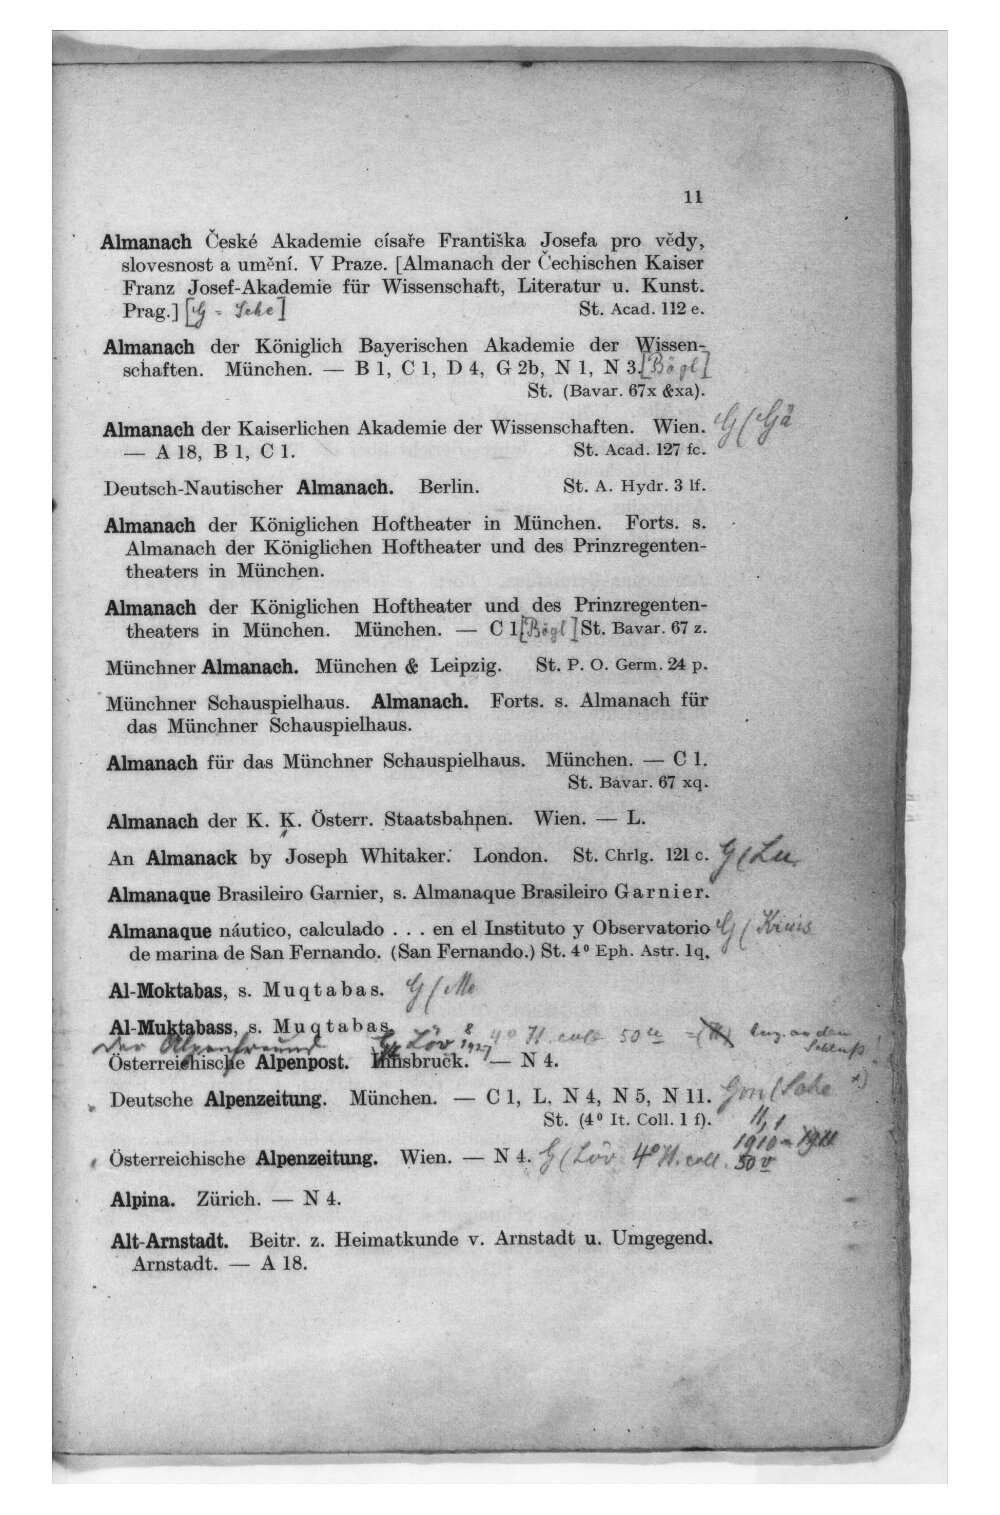 11
Almanach České Akademie císaře Františka Josefa pro vědy,
slovesnost a umění. V Praze. [Almanach der Čechischen Kaiser
Franz Josef-Akademie für Wissenschaft, Literatur u. Kunst.
Prag.] [G = Sche] St. Acad. 112 e.
Almanach der Königlich Bayerischen Akademie der Wissen-
schaften. München. — B 1, C 1, D 4, G 2b, N 1, N 3. [Bögl]
St. (Bavar. 67x & xa).
Almanach der Kaiserlichen Akademie der Wissenschaften. Wien. G (Gä
— A 18, B 1, C 1. St. Acad. 127 fc.
Deutsch-Nautischer Almanach. Berlin. St. A. Hydr. 3 lf.
Almanach der Königlichen Hoftheater in München. Forts. s.
Almanach der Königlichen Hoftheater und des Prinzregenten-
theaters in München.
Almanach der Königlichen Hoftheater und des Prinzregenten-
theaters in München. München. — C 1. [Bögl] St. Bavar. 67 z.
Münchner Almanach. München & Leipzig. St. P. O. Germ. 24 p.
Münchner Schauspielhaus. Almanach. Forts. s. Almanach für
das Münchner Schauspielhaus.
Almanach für das Münchner Schauspielhaus. München. — C 1.
St. Bavar. 67 xq.
Almanach der K. K. Österr. Staatsbahnen. Wien. — L.
An Almanack by Joseph Whitaker. London. St. Chrlg. 121 c. G (Lu
Almanaque Brasileiro Garnier, s. Almanaque Brasileiro Garnier.
Almanaque náutico, calculado . . . en el Instituto y Observatorio G (
de marina de San Fernando. (San Fernando.) St. 4° Eph. Astr. 1q.
Al-Moktabas, s. Muqtabas. G (Me
Al-Muktabass, s. Muqtabas.
Der Alpenfreund G Löv 8 1927 4° H. coll 50 u
Österreichische Alpenpost. Innsbruck. — N 4.
Deutsche Alpenzeitung. München. — C 1, L, N 4, N 5, N 11. (Sche
St. (4° It. Coll. 1 f). 11,1
1910 - 1911
Österreichische Alpenzeitung. Wien. — N 4. G (Löv 4° H. coll. 50 v
Alpina. Zürich. — N 4.
Alt-Arnstadt. Beitr. z. Heimatkunde v. Arnstadt u. Umgegend.
Arnstadt. — A 18.